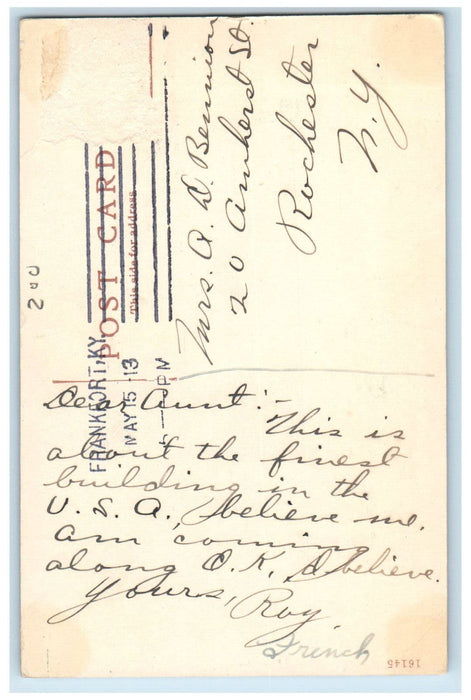 POST CARD
This side for address
FRANKFORT, KY.
MAY 15 13
PM
Mrs. A. D. Bennion
20 Amherst St.
Rochester
N. Y.
Dear Aunt:-
This is
about the finest
building in the
U. S. A., believe me.
am coming
along O. K. I believe.
Yours, Roy.
French
200
16145